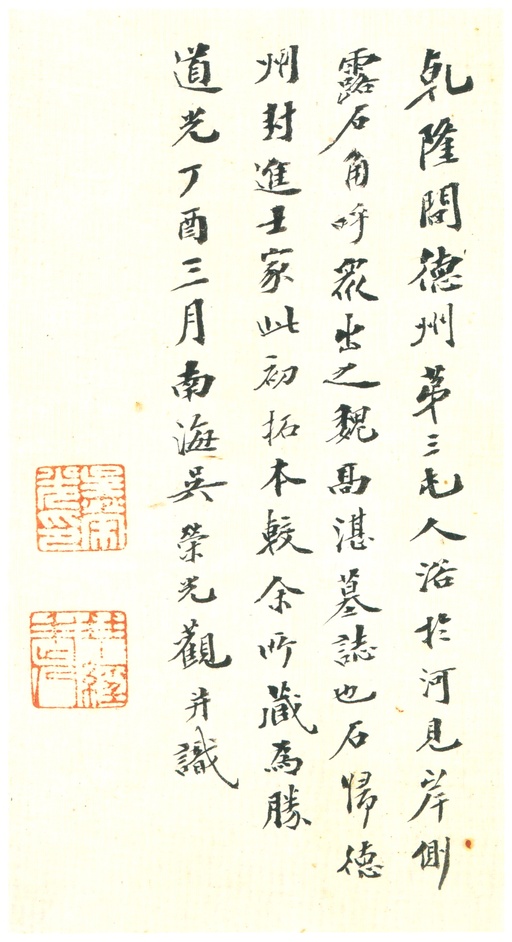 乹隆間德州第三屯人浴於河見岸側
露石角呼衆出之魏高湛墓誌也石歸德
州封進士家此初拓本較余所藏為勝
道光丁酉三月南海吳榮光觀并識
吳榮光印